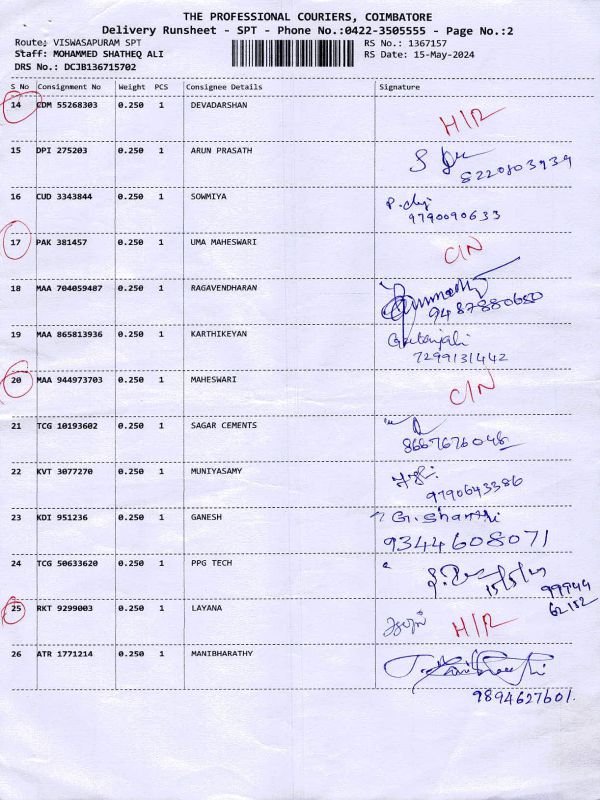 THE PROFESSIONAL COURIERS, COIMBATORE
Delivery Runsheet - SPT - Phone No.:0422-3505555 - Page No.:2
Route: VISWASAPURAM SPT RS No.: 1367157
Staff: MOHAMMED SHATHEQ ALI RS Date: 15-May-2024
DRS No.: DCJB136715702
S No Consignment No Weight PCS Consignee Details Signature
14 CDM 55268303 0.250 1 DEVADARSHAN H/R
15 DPI 275203 0.250 1 ARUN PRASATH
8220803939
16 CUD 3343844 0.250 1 SOWMIYA
9790090633
17 PAK 381457 0.250 1 UMA MAHESWARI C/N
18 MAA 704059487 0.250 1 RAGAVENDHARAN
9487880680
19 MAA 865813936 0.250 1 KARTHIKEYAN Geetanjali
7299131442
20 MAA 944973703 0.250 1 MAHESWARI C/N
21 TCG 10193602 0.250 1 SAGAR CEMENTS
8667676046
22 KVT 3077270 0.250 1 MUNIYASAMY
9790643386
23 KDI 951236 0.250 1 GANESH G. Shanthi
9344608071
24 TCG 50633620 0.250 1 PPG TECH
15/5/24 99944
62152
25 RKT 9299003 0.250 1 LAYANA H/R
26 ATR 1771214 0.250 1 MANIBHARATHY
9894627601.